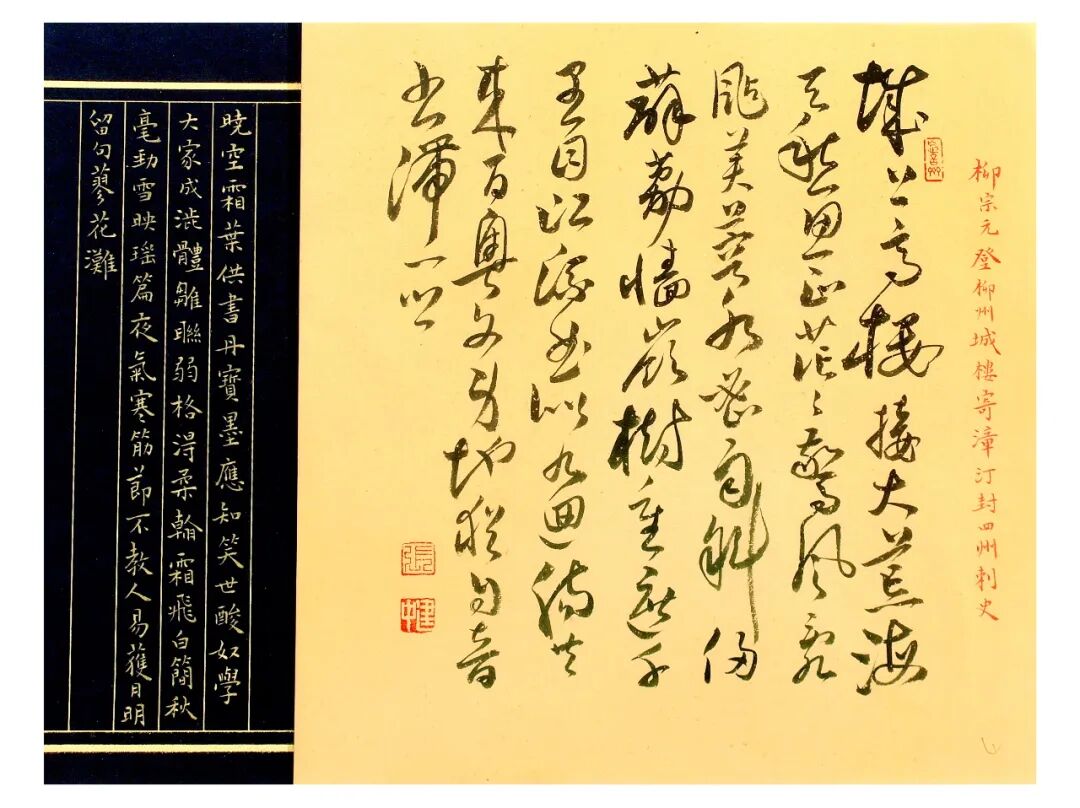 柳宗元登柳州城樓寄漳汀封四州刺史
城上高樓接大荒海
天愁思正茫〻驚風亂
颭芙蓉水密雨斜侵
薜荔牆嶺樹重遮千
里目江流曲似九迴腸共
來百粵文身地猶自音
書滯一鄉
張
建中
曉空霜葉供書丹寶墨應知笑世酸奴學
大家成澁體雛聯弱格淂柔翰霜飛白簡秋
毫勁雪映瑤篇夜氣寒筋節不教人易獲月明
留句蓼花灘